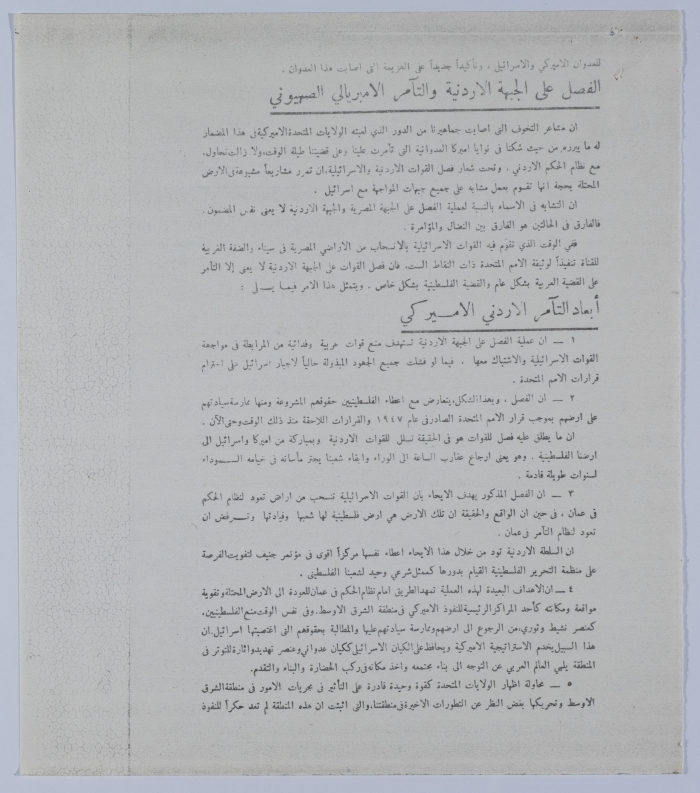 للعدوان الاميركي والاسرائيلي ، وتأكيداً جديداً على الهزيمة التى اصابت هذا العدوان .
الفصل على الجبهة الاردنية والتآمر الامبريالي الصهيوني
ان مشاعر التخوف التى اصابت جماهيرنا من الدور الذي لعبته الولايات المتحدة الاميركية فى هذا المضمار
له ما يبرره من حيث شكنا فى نوايا اميركا العدوانية التى تآمرت علينا وعلى قضيتنا طيلة الوقت، ولا زالت تحاول،
مع نظام الحكم الاردني ، وتحت شعار فصل القوات الاردنية والاسرائيلية، ان تمرر مشاريعاً مشبوهة فى الارض
المحتلة بحجة انها تقوم بعمل مشابه على جميع جبهات المواجهة مع اسرائيل .
ان التشابه فى الاسماء بالنسبة لعملية الفصل على الجبهة المصرية والجبهة الاردنية لا يعنى نفس المضمون .
فالفارق فى الحالتين هو الفارق بين النضال والمؤامرة .
ففي الوقت الذي تقوم فيه القوات الاسرائيلية بالانسحاب من الاراضي المصرية فى سيناء والضفة الغربية
للقناة تنفيذاً لوثيقة الامم المتحدة ذات النقاط الست، فان فصل القوات على الجبهة الاردنية لا يعنى إلا التآمر
على القضية العربية بشكل عام والقضية الفلسطينية بشكل خاص . ويتمثل هذا الامر فيما يلى :
أبعاد التآمر الاردني الاميركي
١ — ان عملية الفصل على الجبهة الاردنية تستهدف منع قوات عربية وفدائية من المرابطة فى مواجهة
القوات الاسرائيلية والاشتباك معها ، فيما لو فشلت جميع الجهود المبذولة حالياً لاجبار اسرائيل على احترام
قرارات الامم المتحدة .
٢ — ان الفصل ، وبهذا الشكل، يتعارض مع اعطاء الفلسطينيين حقوقهم المشروعة ومنها ممارسة سيادتهم
على ارضهم بموجب قرار الامم المتحدة الصادر فى عام ١٩٤٧ والقرارات اللاحقة منذ ذلك الوقت وحتى الآن .
ان ما يطلق عليه فصل للقوات هو فى الحقيقة تسلل للقوات الاردنية وبمباركة من اميركا واسرائيل الى
ارضنا الفلسطينية . وهو يعنى ارجاع عقارب الساعة الى الوراء وابقاء شعبنا يجتر مأساته فى خيامه السوداء
لسنوات طويلة قادمة .
٣ — ان الفصل المذكور يهدف الايحاء بان القوات الاسرائيلية تنسحب من اراض تعود لنظام الحكم
فى عمان ، فى حين ان الواقع والحقيقة ان تلك الارض هي ارض فلسطينية لها شعبها وقيادتها وترفض ان
تعود لنظام التآمر فى عمان .
ان السلطة الاردنية تود من خلال هذا الايحاء اعطاء نفسها مركزاً اقوى فى مؤتمر جنيف لتفويت الفرصة
على منظمة التحرير الفلسطينية القيام بدورها كممثل شرعي وحيد لشعبنا الفلسطيني .
٤ — ان الاهداف البعيدة لهذه العملية تمهد الطريق امام نظام الحكم فى عمان للعودة الى الارض المحتلة وتقوية
مواقعه ومكانته كأحد المراكز الرئيسية للنفوذ الاميركي فى منطقة الشرق الاوسط، وفى نفس الوقت منع الفلسطينيين،
كعنصر نشيط وثوري، من الرجوع الى ارضهم وممارسة سيادتهم عليها والمطالبة بحقوقهم التى اغتصبتها اسرائيل. ان
هذا السبيل يخدم الاستراتيجية الاميركية ويحافظ على الكيان الاسرائيلي ككيان عدواني وعنصر تهديد واثارة للتوتر فى
المنطقة يلهي العالم العربي عن التوجه الى بناء مجتمعه واخذ مكانه فى ركب الحضارة والبناء والتقدم.
٥ — محاولة اظهار الولايات المتحدة كقوة وحيدة قادرة على التأثير فى مجريات الامور فى منطقة الشرق
الاوسط وتحريكها بغض النظر عن التطورات الاخيرة فى منطقتنا، والتى اثبتت ان هذه المنطقة لم تعد حكراً للنفوذ